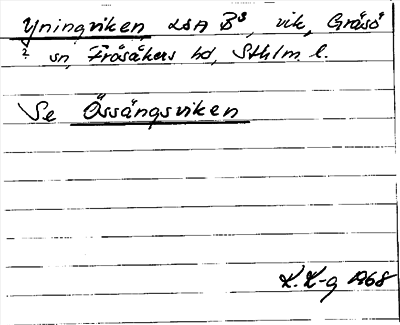 Yningviken LSA B³, vik, Gräsö
? sn, Frösåkers hd, Sthlm l.
Se Össängsviken
K.K-g 1968